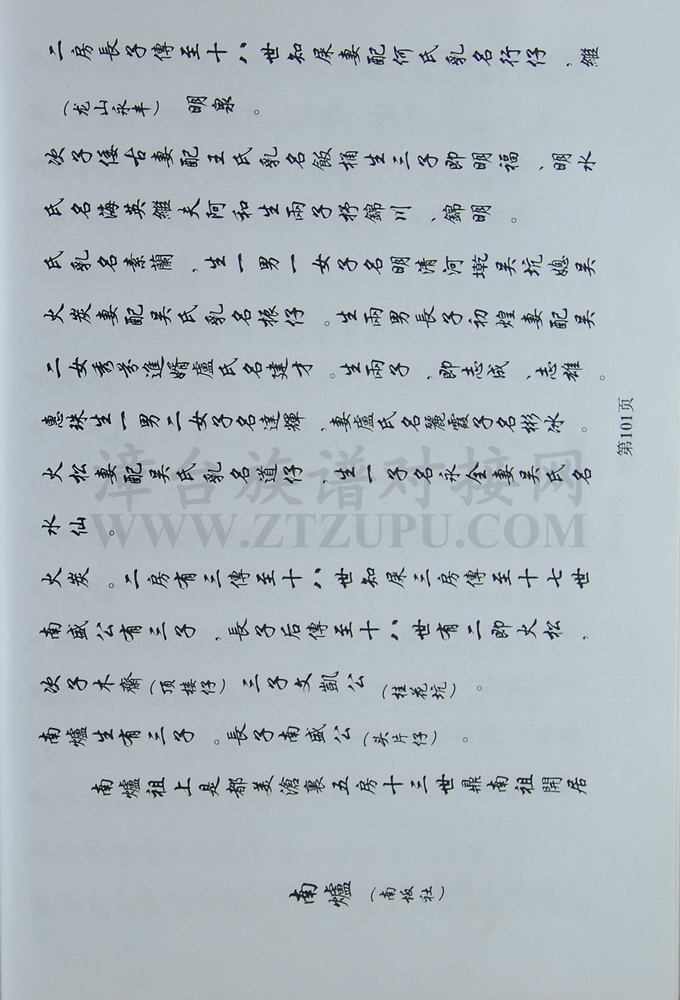 南爐（南坂社）
南爐祖上是都美滄裏五房十三世鼎南祖開居
南爐生有三子。長子南盛公（头片仔）。
次子木齋（顶楼仔）三子文凱公（桂花坑）。
南盛公有三子，長子后傳至十八世有二即火松，
火炭。二房有三傳至十八世知屎三房傳至十七世
水仙。
火松妻配吳氏乳名道仔，生一子名永全妻吳氏名
惠珠生一男二女子名達輝，妻盧氏名麗霞子名彬冰。
二女秀芬進婿盧氏名建才。生兩子，即志成、志雄。
火炭妻配吳氏乳名振仔。生兩男長子初煌妻配吳
氏乳名素蘭，生一男一女子名明清河墘吳坑媳吳
氏名海英繼夫阿和生兩子抒錦川、錦明。
次子倭古妻配王氏乳名飯桶生三子即明福、明水
（龙山永丰）明泉。
二房長子傳至十八世知屎妻配何氏乳名行仔，繼
第101页
漳台族谱对接网
WWW.ZTZUPU.COM